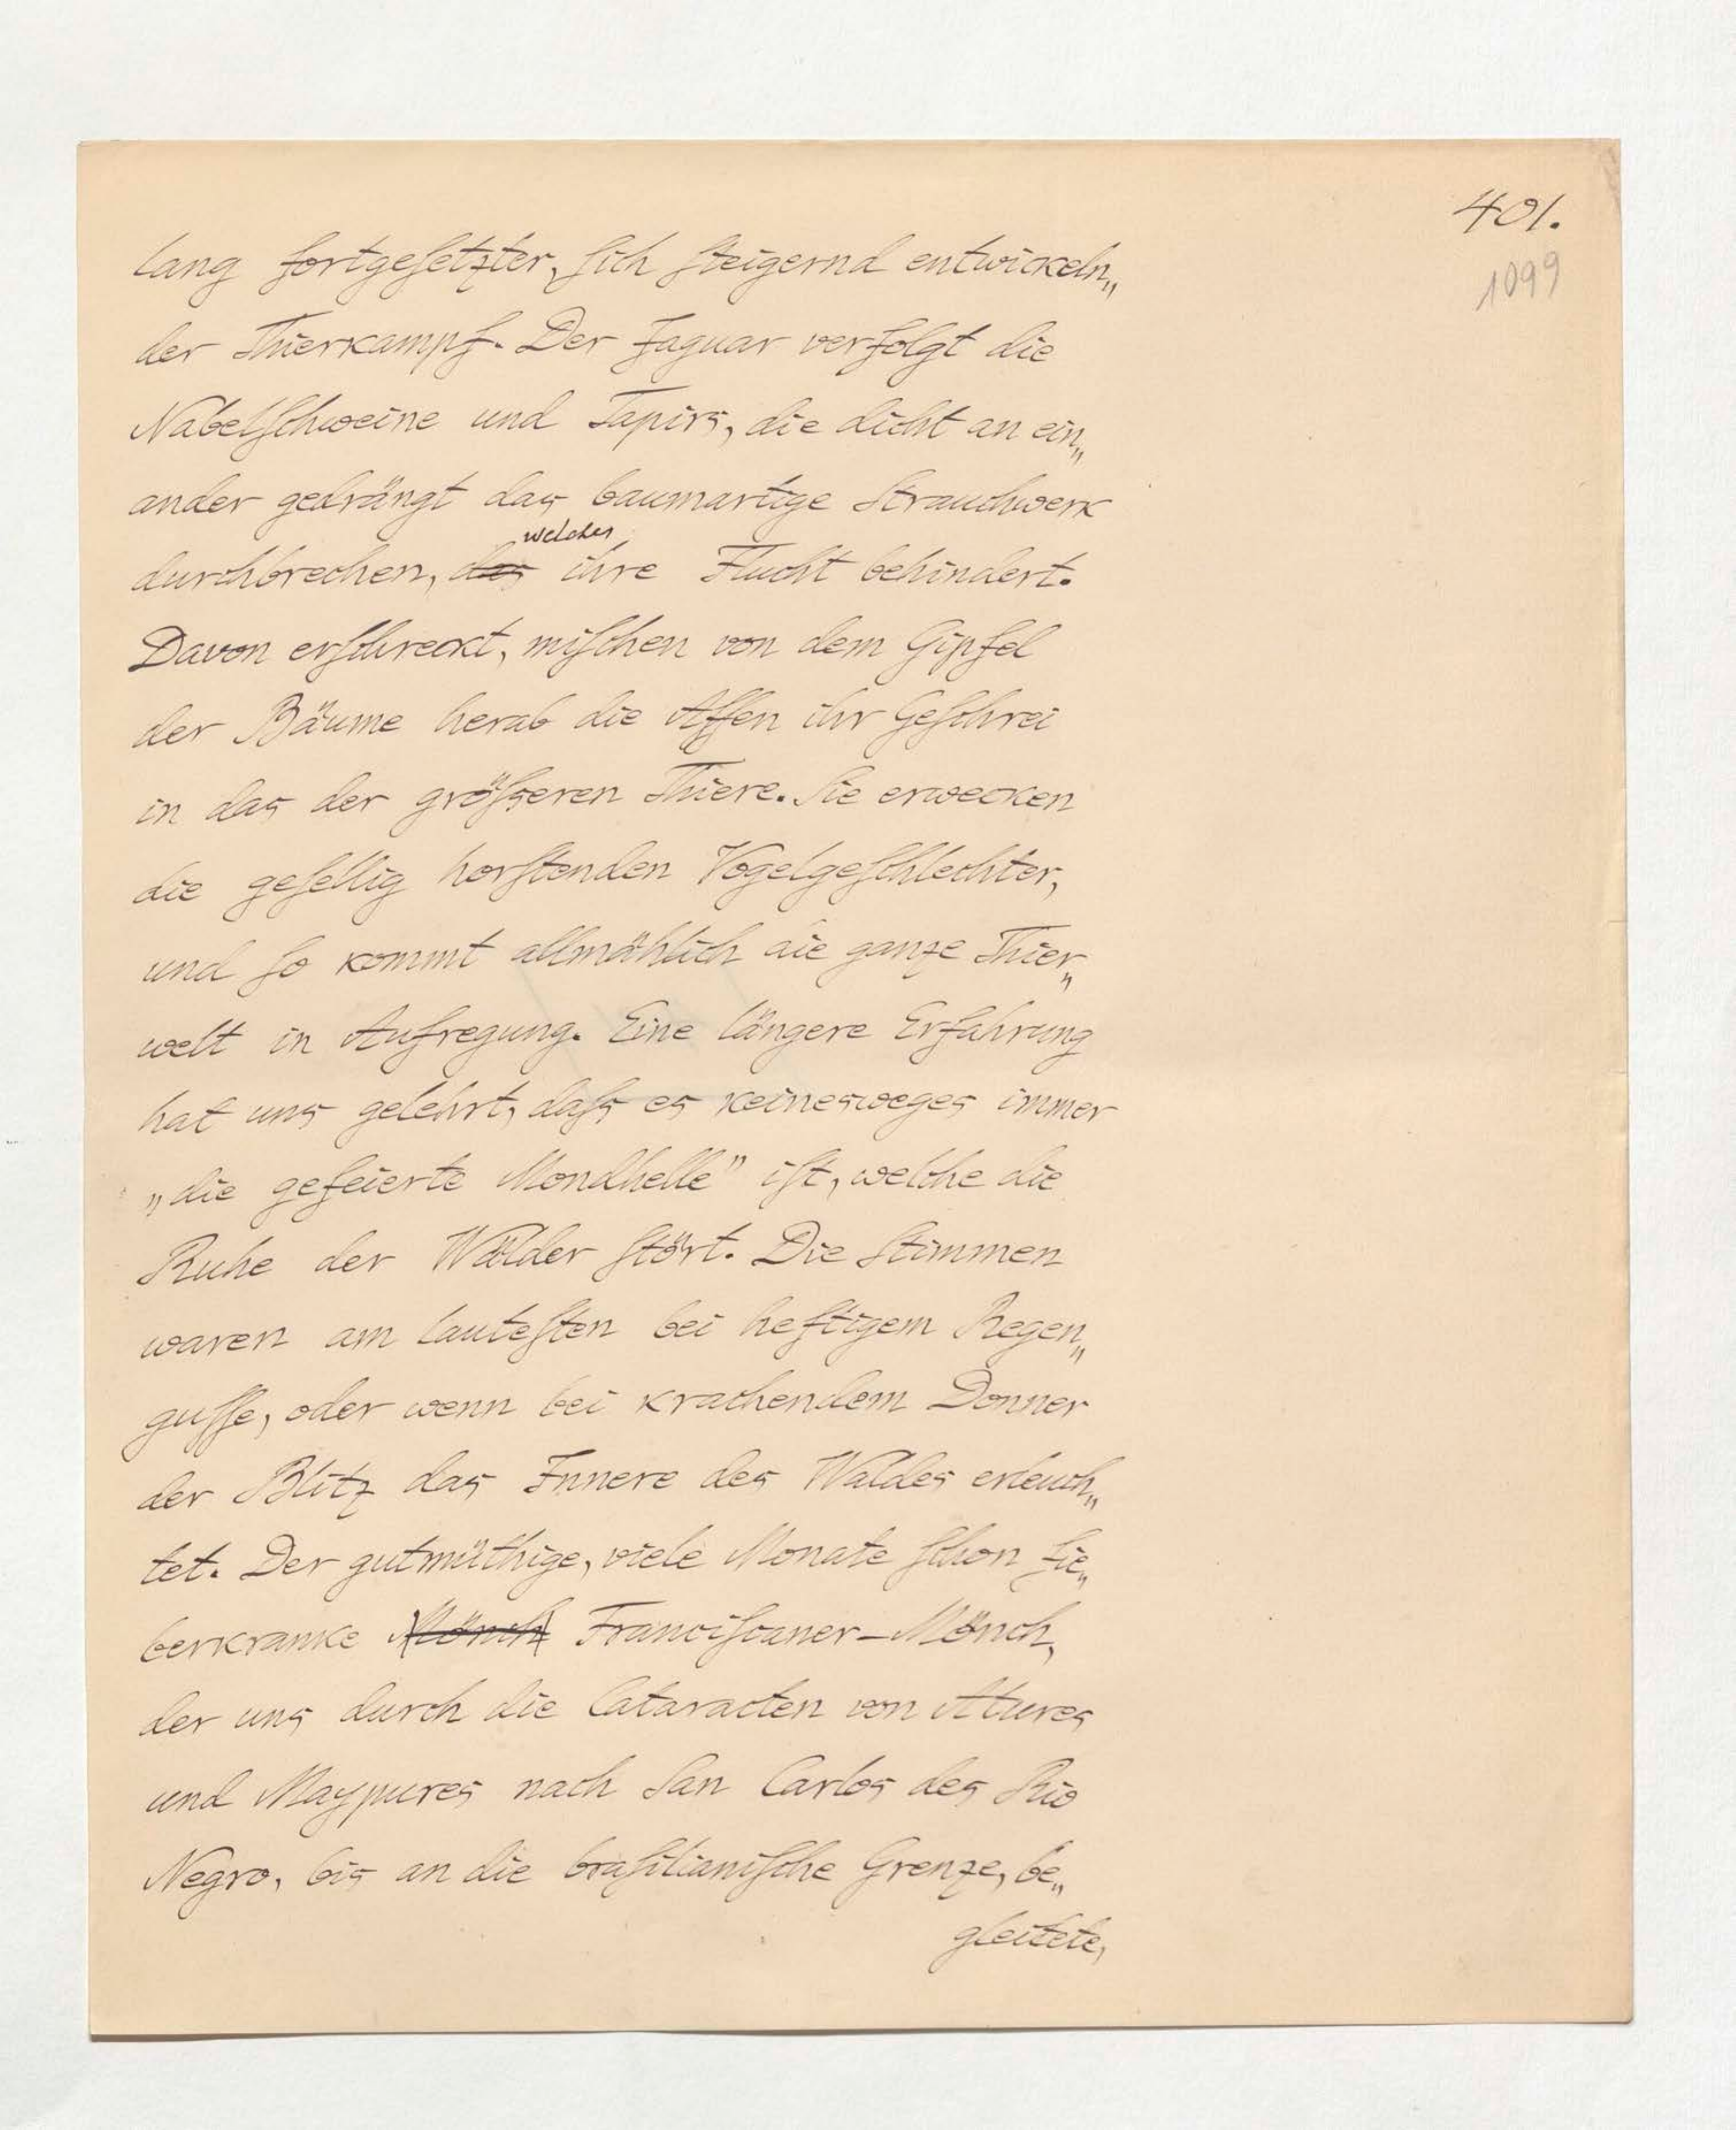 401.
1099
lang fortgesetzter, sich steigernd entwickeln„
der Thierkampf. Der Jaguar verfolgt die
Nabelschweine und Tapirs, die dicht an ein„
ander gedrängt das baumartige Strauchwerk
welches
durchbrechen, das ihre Flucht behindert.
Davon erschreckt, mischen von dem Gipfel
der Bäume herab die Affen ihr Geschrei
in das der größeren Thiere. Sie erwecken
die gesellig horstenden Vogelgeschlechter,
und so kommt allmählich die ganze Thier„
welt in Aufregung. Eine längere Erfahrung
hat uns gelehrt, daß es keinesweges immer
„die gefeierte Mondhelle” ist, welche die
Ruhe der Wälder stört. Die Stimmen
waren am lautesten bei heftigem Regen„
gusse, oder wenn bei krachendem Donner
der Blitz das Innere des Waldes erleuch„
tet. Der gutmüthige, viele Monate schon fie„
berkranke Mönch Franciscaner-Mönch,
der uns durch die Cataracten von Atures
und Maypures nach San Carlos des Rio
Negro, bis an die brasilianische Grenze, be„
gleitete,